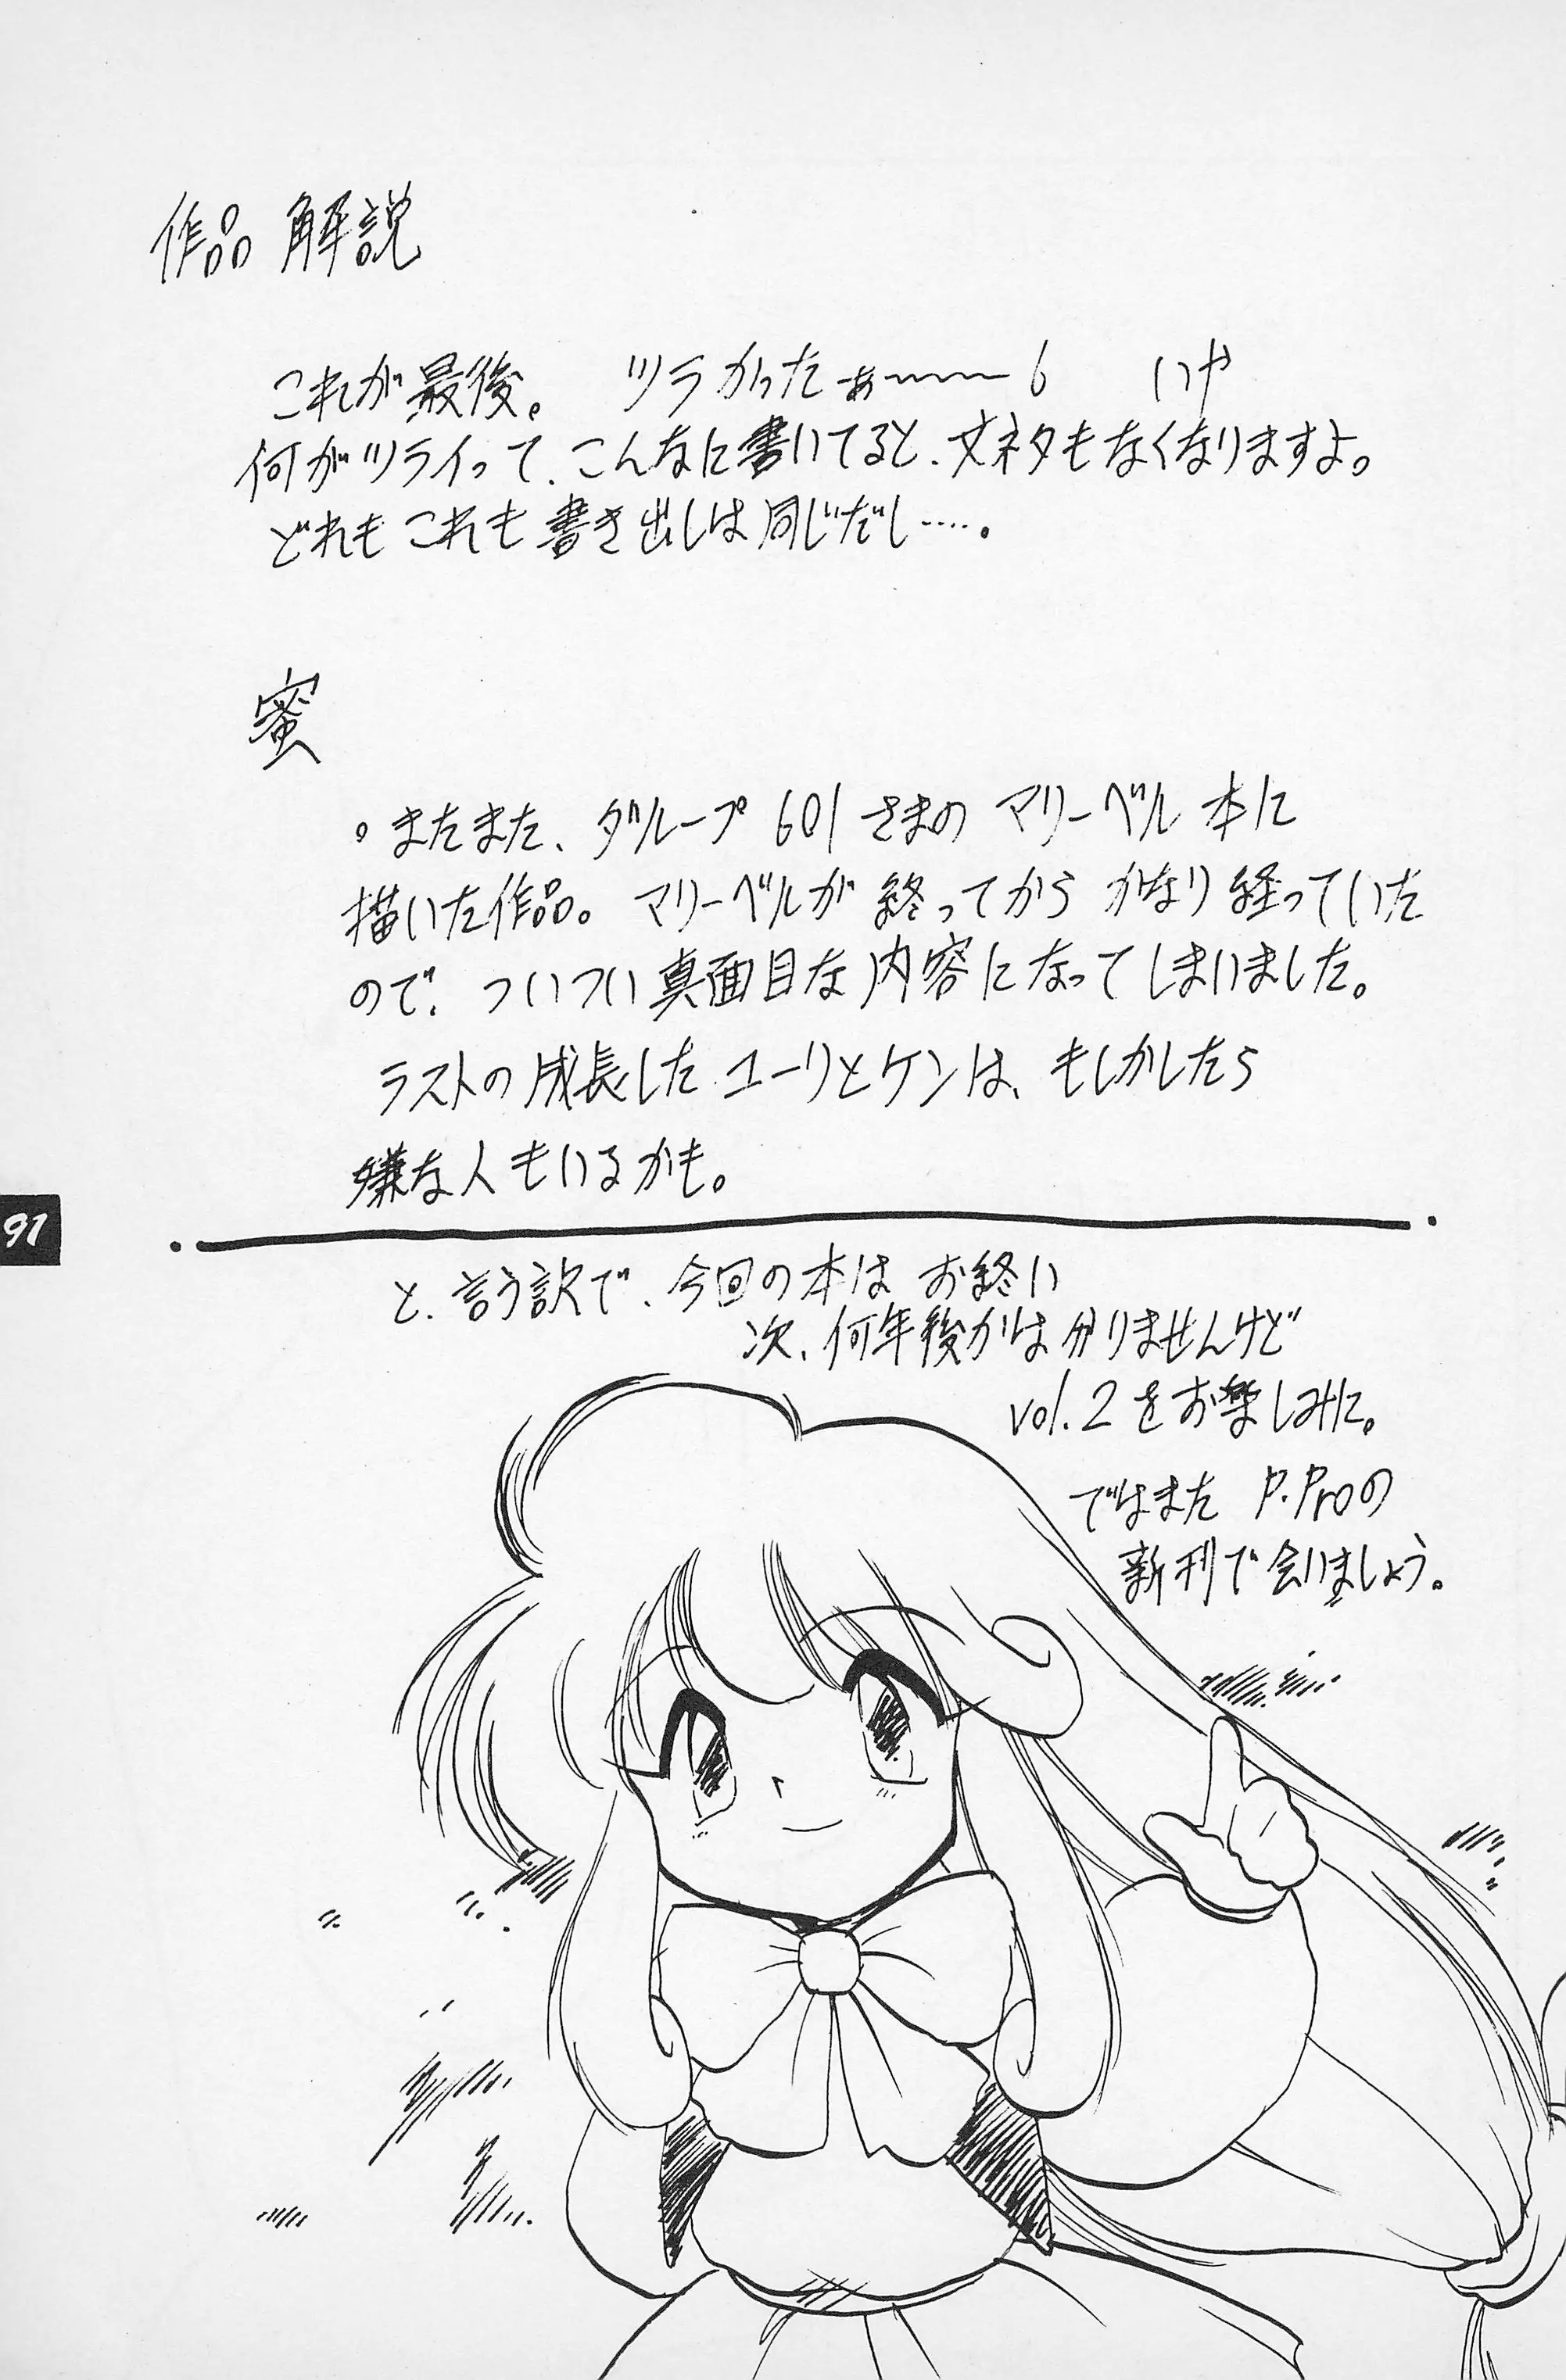 作品 解説
これが最後。 ツラかったぁ~~~~ いや
何がツライって、こんなに書いてると、文ネタもなくなりますよ。
どれもこれも書き出しは同じだし……。
蜜
。またまた、グループ601さまの マリーベル本に
描いた作品。マリーベルが 終ってから かなり経っていた
ので、ついつい真面目な内容になってしまいました。
ラストの成長した ユーリとケンは、もしかしたら
嫌な人もいるかも。
91
と、言う訳で、今回の本は お終い
次、何年後かは分りませんけど
vol.2をお楽しみに。
ではまた P.Proの
新刊で会いましょう。